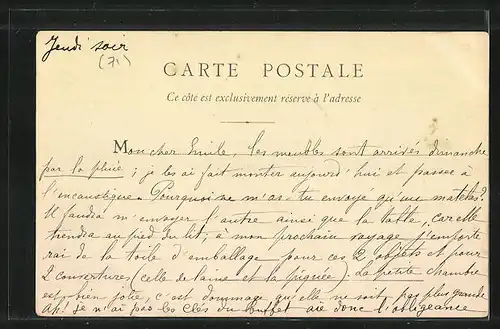 Jeudi soir
(71)
CARTE POSTALE
Ce côté est exclusivement réservé à l'adresse
M
Mon cher Emile, les meubles sont arrivés dimanche
par la pluie ; je les ai fait monter aujourd'hui et passée à
l'incaustique. Pourquoi ne m'as-tu envoyé qu'un matelas?
Il faudra m'envoyer l'autre ainsi que la table, car elle
tiendra au pied du lit, a mon prochain voyage j'emporte
rai de la toile d'emballage pour ces 2 objets et pour
2 couvertures (celle de laine et la piquée). La petite chambre
est bien jolie, c'est dommage qu'elle ne soit pas plus grande
Ah! je n'ai pas les clés du buffet aie donc l'obligeance